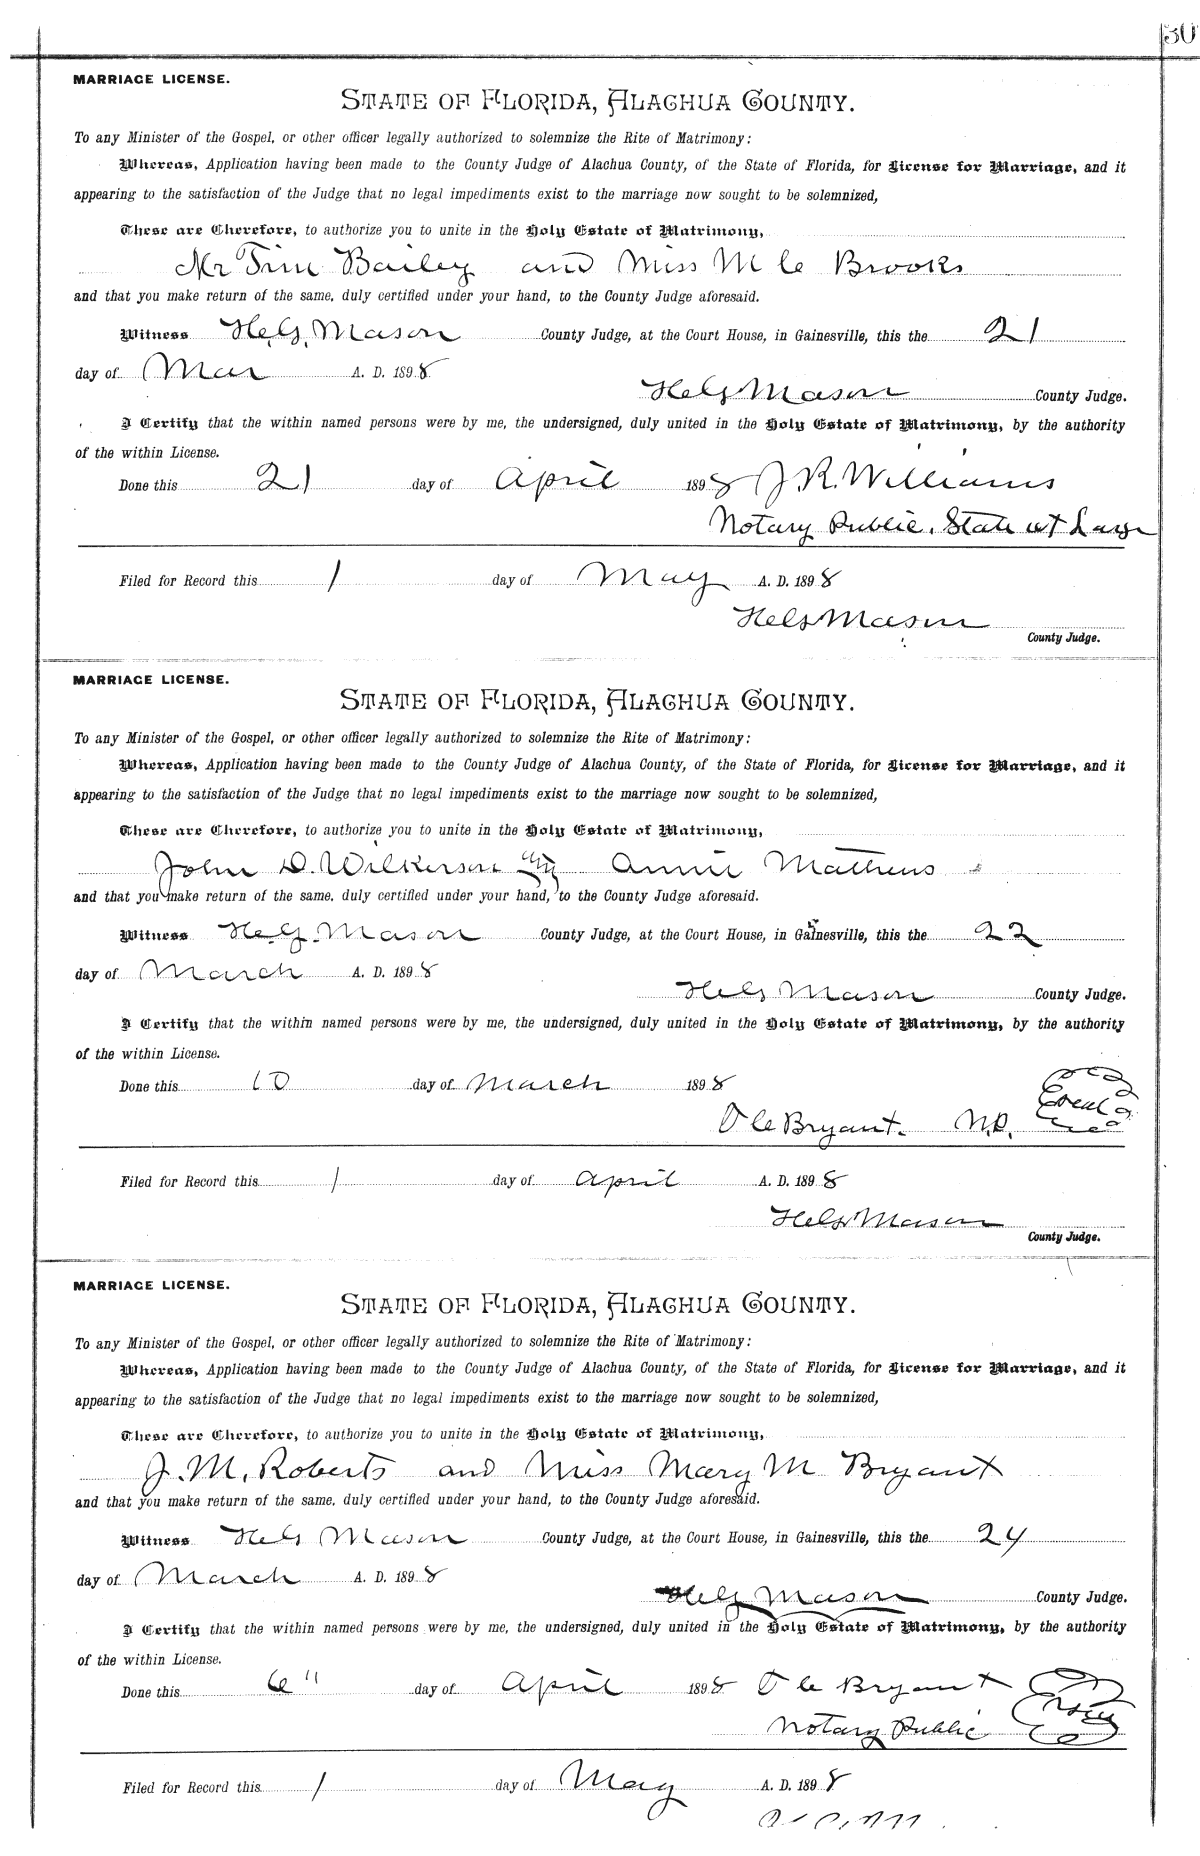 30
MARRIAGE LICENSE.
STATE OF FLORIDA, ALACHUA COUNTY.
To any Minister of the Gospel, or other officer legally authorized to solemnize the Rite of Matrimony:
Whereas, Application having been made to the County Judge of Alachua County, of the State of Florida, for License for Marriage, and it
appearing to the satisfaction of the Judge that no legal impediments exist to the marriage now sought to be solemnized,
These are Therefore, to authorize you to unite in the Holy Estate of Matrimony,
Mr Tim Bailey and Miss M C Brooks
and that you make return of the same, duly certified under your hand, to the County Judge aforesaid.
Witness H. G. Mason County Judge, at the Court House, in Gainesville, this the 21
day of Mar A. D. 1898
H G Mason County Judge.
I Certify that the within named persons were by me, the undersigned, duly united in the Holy Estate of Matrimony, by the authority
of the within License.
Done this 21 day of April 1898 J. R. Williams
Notary Public. State at Large
Filed for Record this 1 day of May A. D. 1898
H G Mason
County Judge.
MARRIAGE LICENSE.
STATE OF FLORIDA, ALACHUA COUNTY.
To any Minister of the Gospel, or other officer legally authorized to solemnize the Rite of Matrimony:
Whereas, Application having been made to the County Judge of Alachua County, of the State of Florida, for License for Marriage, and it
appearing to the satisfaction of the Judge that no legal impediments exist to the marriage now sought to be solemnized,
These are Therefore, to authorize you to unite in the Holy Estate of Matrimony,
John D. Wilkerson Annie Mathews
and that you make return of the same, duly certified under your hand, to the County Judge aforesaid.
Witness H. G. Mason County Judge, at the Court House, in Gainesville, this the 22
day of March A. D. 1898
H G Mason County Judge.
I Certify that the within named persons were by me, the undersigned, duly united in the Holy Estate of Matrimony, by the authority
of the within License.
Done this 10 day of March 1898
O C Bryant. N.P.
Filed for Record this 1 day of April A. D. 1898
H G Mason
County Judge.
MARRIAGE LICENSE.
STATE OF FLORIDA, ALACHUA COUNTY.
To any Minister of the Gospel, or other officer legally authorized to solemnize the Rite of Matrimony:
Whereas, Application having been made to the County Judge of Alachua County, of the State of Florida, for License for Marriage, and it
appearing to the satisfaction of the Judge that no legal impediments exist to the marriage now sought to be solemnized,
These are Therefore, to authorize you to unite in the Holy Estate of Matrimony,
J. M. Roberts and Miss Mary M Bryant
and that you make return of the same, duly certified under your hand, to the County Judge aforesaid.
Witness H G Mason County Judge, at the Court House, in Gainesville, this the 24
day of March A. D. 1898
H G Mason County Judge.
I Certify that the within named persons were by me, the undersigned, duly united in the Holy Estate of Matrimony, by the authority
of the within License.
Done this 6" day of April 1898 O C Bryant
Notary Public
Filed for Record this 1 day of May A. D. 1898